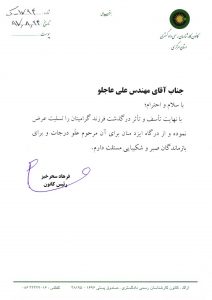 کانون کارشناسان رسمی دادگستری
استان مرکزی
جناب آقای مهندس علی عاجلو
با سلام و احترام؛
با نهایت تأسف و تأثر درگذشت فرزند گرامیتان را تسلیت عرض
نموده و از درگاه ایزد منان برای آن مرحوم علو درجات و برای
بازماندگان صبر و شکیبایی مسئلت دارم.
فرهاد سحرخیز
رئیس کانون